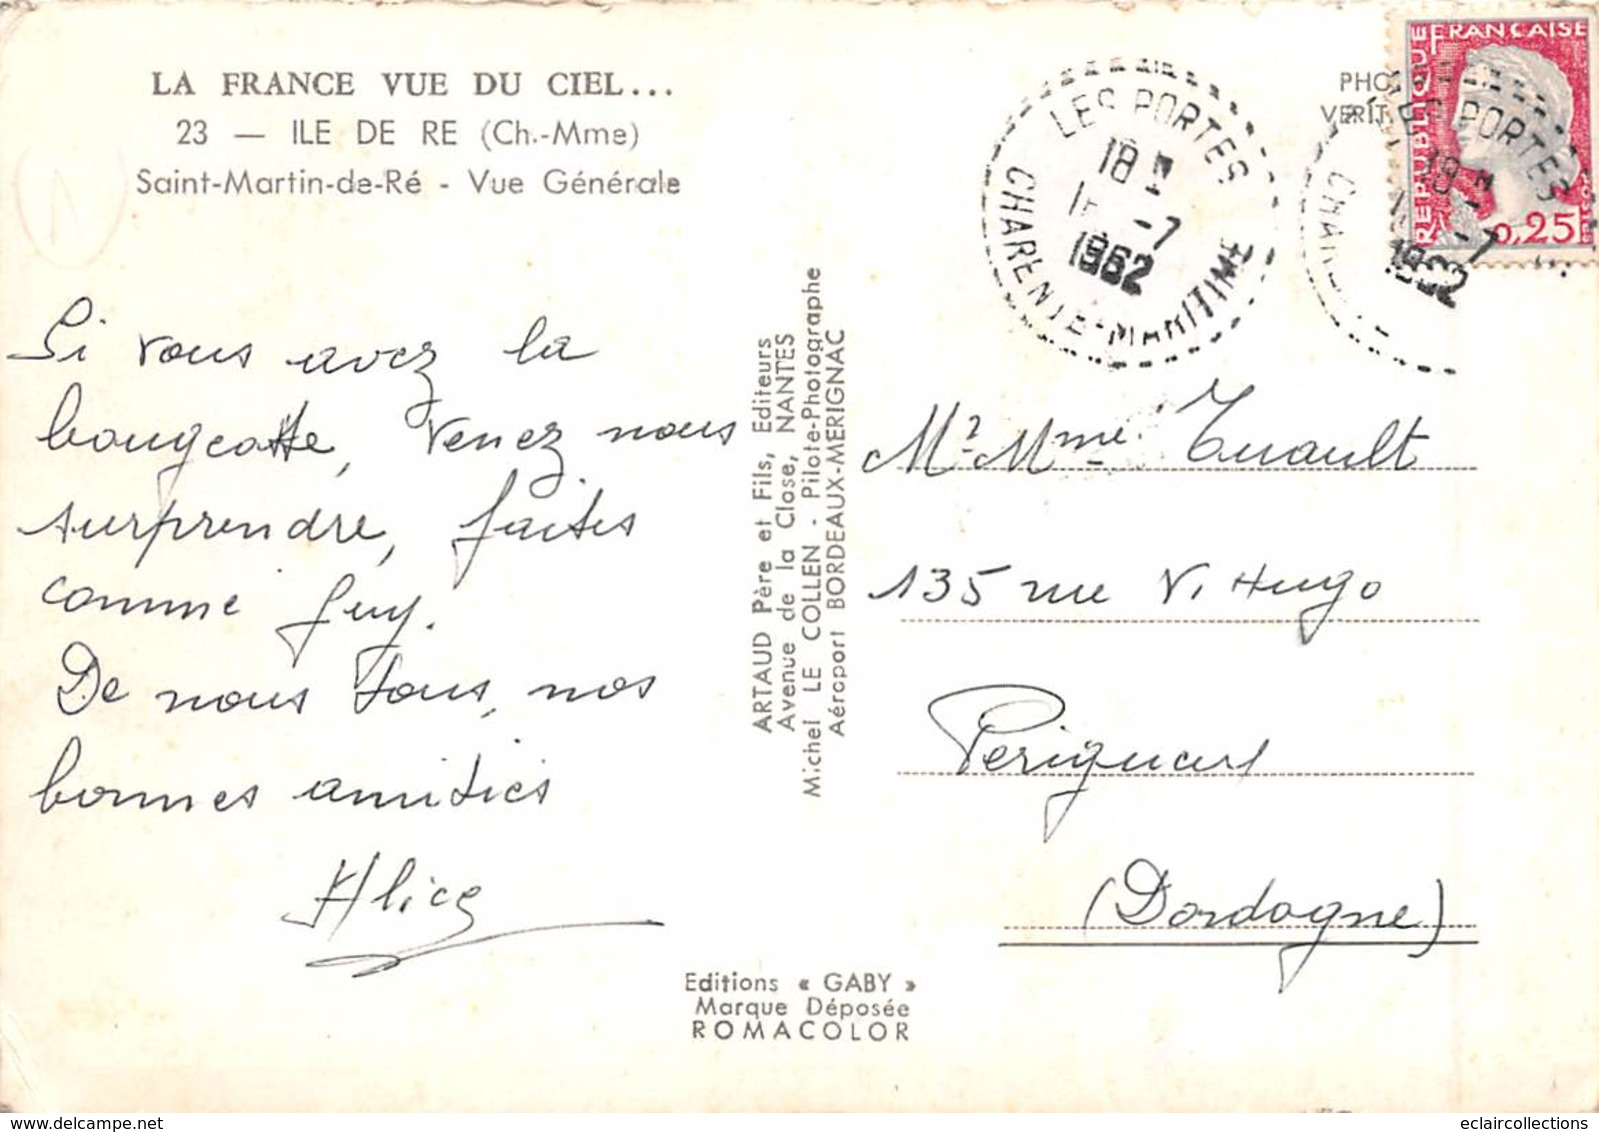 LA FRANCE VUE DU CIEL...
23 — ILE DE RE (Ch.-Mme)
Saint-Martin-de-Ré - Vue Générale
Si vous avez la
bougeotte, venez nous
surprendre, faites
comme Guy.
De nous tous, nos
bonnes amitiés
Alice
ARTAUD Père et Fils, Editeurs
Avenue de la Close, NANTES
Michel LE COLLEN - Pilote-Photographe
Aéroport BORDEAUX-MERIGNAC
Editions « GABY »
Marque Déposée
ROMACOLOR
LES PORTES
18 H
-7
1962
CHARENTE-MARITIME
PHO
VERIT
REPUBLIQUE FRANÇAISE
0,25
LES PORTES
18
-7
1962
Mr Mme Tuault
135 rue V. Hugo
Perigueux
(Dordogne)
eclaircollections